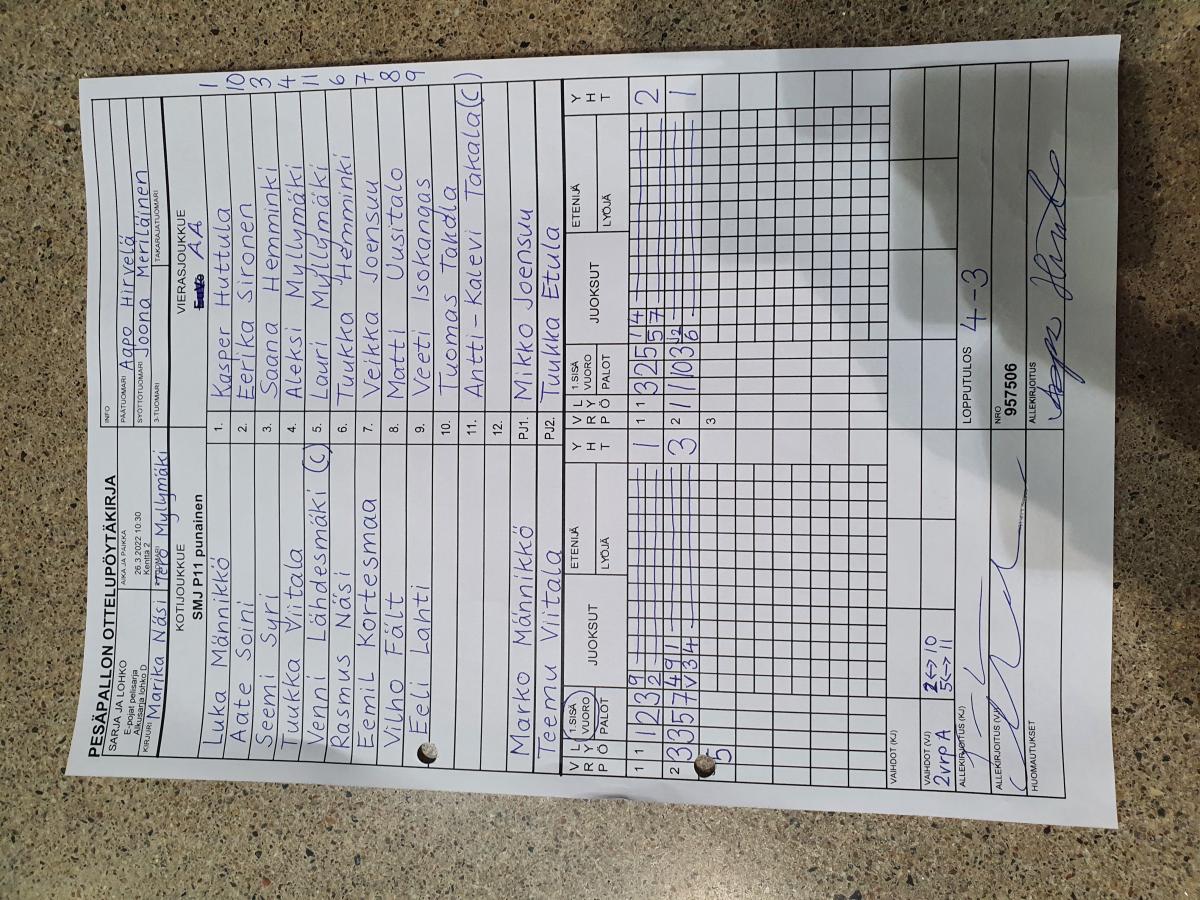 PESÄPALLON OTTELUPÖYTÄKIRJA
SARJA JA LOHKO
AIKA JA PAIKKA
INFO
E-pojat pelisarja
Alkusarja lohko D
26.3.2022 10:30
Kenttä 2
PÄÄTUOMARI Aapo Hirvelä
SYÖTTÖTUOMARI Joona Meriläinen
KIRJURI Marika Näsi
2-TUOMARI Tero Myllymäki
3-TUOMARI
TAKARAJATUOMARI
KOTIJOUKKUE
VIERASJOUKKUE
SMJ P11 punainen
AA
Luka Männikkö 1. Kasper Huttula 1
Aate Soini 2. Eerika Sironen 10
Seemi Syri 3. Saana Hemminki 3
Tuukka Viitala 4. Aleksi Myllymäki 4
Venni Lähdesmäki (C) 5. Lauri Myllymäki 11
Rasmus Näsi 6. Tuukka Hemminki 6
Eemil Kortesmaa 7. Veikka Joensuu 7
Vilho Fält 8. Matti Uusitalo 8
Eeli Lahti 9. Veeti Isokangas 9
10. Tuomas Takdla
11. Antti-Kalevi Takala (C)
12.
Marko Männikkö PJ1. Mikko Joensuu
Teemu Viitala PJ2. Tuukka Etula
V R P L Y Ö 1.SISÄ VUORO PALOT JUOKSUT ETENIJÄ LYÖJÄ Y H T V R P L Y Ö 1.SISÄ VUORO PALOT JUOKSUT ETENIJÄ LYÖJÄ Y H T
1 1 1 2 3 9 2 1 1 1 3 2 5 1 4 5 7 2
2 3 3 5 7 4 9 1 V 3 4 3 2 1 1 10 3 J2 6 1
5 3
VAIHDOT (KJ)
VAIHDOT (VJ)
2vrp A 2<->10
5<->11
ALLEKIRJOITUS (KJ)
LOPPUTULOS 4-3
ALLEKIRJOITUS (VJ)
NRO
957506
HUOMAUTUKSET
ALLEKIRJOITUS